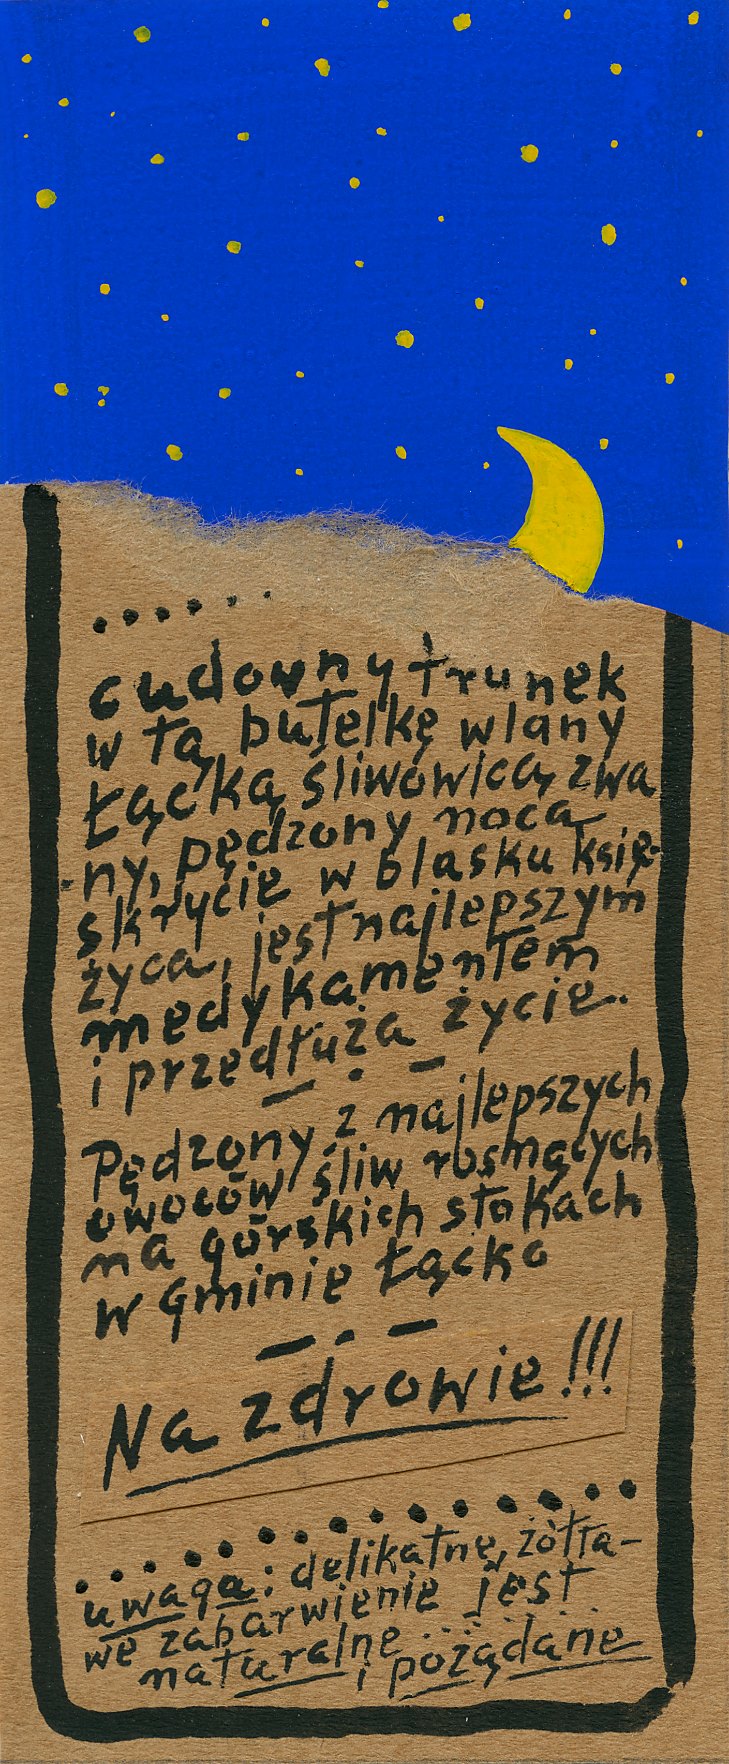 cudowny trunek
w tą butelkę wlany
Łącką śliwowicą zwa
ny, pędzony nocą
skrycie w blasku księ-
życa, jest najlepszym
medykamentem
i przedłuża życie.
Pędzony z najlepszych
owoców śliw rosnących
na górskich stokach
w gminie Łącko
Na zdrowie!!!
uwaga: delikatne, żółta-
we zabarwienie jest
naturalne
i pożądane